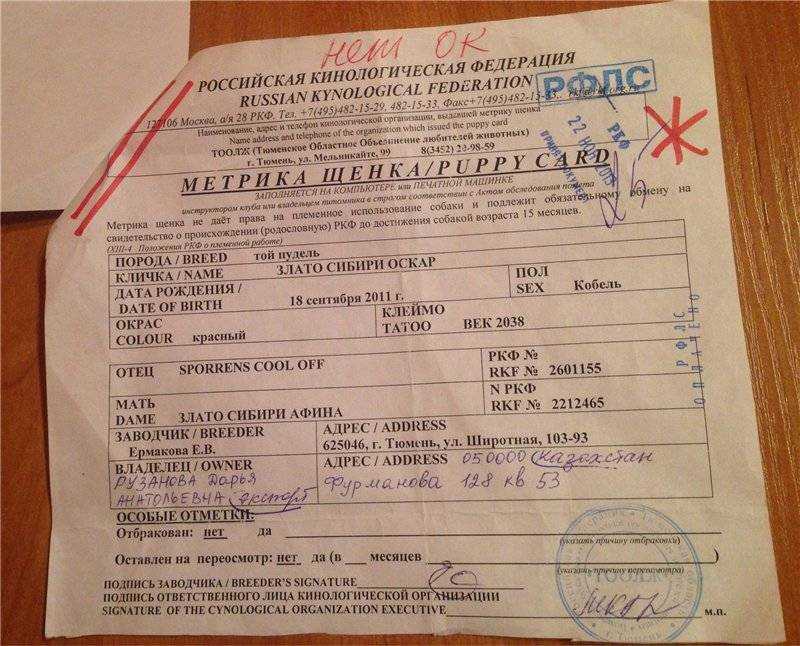 нет ОК
РОССИЙСКАЯ КИНОЛОГИЧЕСКАЯ ФЕДЕРАЦИЯ
RUSSIAN KYNOLOGICAL FEDERATION
РФЛС
127106 Москва, а/я 28 РКФ. Тел. +7(495)482-15-29, 482-15-33, Факс+7(495)482-15-
Наименование, адрес и телефон кинологической организации, выдавшей метрику щенка
Name address and telephone of the organization which issued the puppy card
ТООЛЖ (Тюменское Областное Объединение любителей животных)
г. Тюмень, ул. Мельникайте, 99 8(3452) 20-98-59
22 НОЯ
РКФ
Ж
МЕТРИКА ЩЕНКА/PUPPY CARD
ЗАПОЛНЯЕТСЯ НА КОМПЬЮТЕРЕ или ПЕЧАТНОЙ МАШИНКЕ
инструктором клуба или владельцем питомника в строгом соответствии с Актом обследования помета
Метрика щенка не даёт права на племенное использование собаки и подлежит обязательному обмену на
свидетельство о происхождении (родословную) РКФ до достижения собакой возраста 15 месяцев.
(XIII-4 Положения РКФ о племенной работе)
ПОРОДА / BREED той пудель
КЛИЧКА / NAME ЗЛАТО СИБИРИ ОСКАР
ДАТА РОЖДЕНИЯ / DATE OF BIRTH 18 сентября 2011 г.
ПОЛ SEX Кобель
ОКРАС COLOUR красный
КЛЕЙМО TATOO ВЕК 2038
РФЛС
ОПЛАЧЕНО
ОТЕЦ SPORRENS COOL OFF
РКФ №
RKF № 2601155
МАТЬ
DAME ЗЛАТО СИБИРИ АФИНА
N РКФ
RKF № 2212465
ЗАВОДЧИК / BREEDER
Ермакова Е.В.
АДРЕС / ADDRESS
625046, г. Тюмень, ул. Широтная, 103-93
ВЛАДЕЛЕЦ / OWNER
РУЗАНОВА Дарья
АНАТОЛЬЕВНА экспорт
АДРЕС / ADDRESS 050000 Казохстан
Фурманова 128 кв 53
ОСОБЫЕ ОТМЕТКИ:
Отбракован: нет да
(указать причину отбраковки)
Оставлен на пересмотр: нет да (в месяцев )
(указать причину пересмотра)
ПОДПИСЬ ЗАВОДЧИКА / BREEDER'S SIGNATURE
ПОДПИСЬ ОТВЕТСТВЕННОГО ЛИЦА КИНОЛОГИЧЕСКОЙ ОРГАНИЗАЦИИ
SIGNATURE OF THE CYNOLOGICAL ORGANIZATION EXECUTIVE
м.п.
ТООЛЖ
г. Тюмень